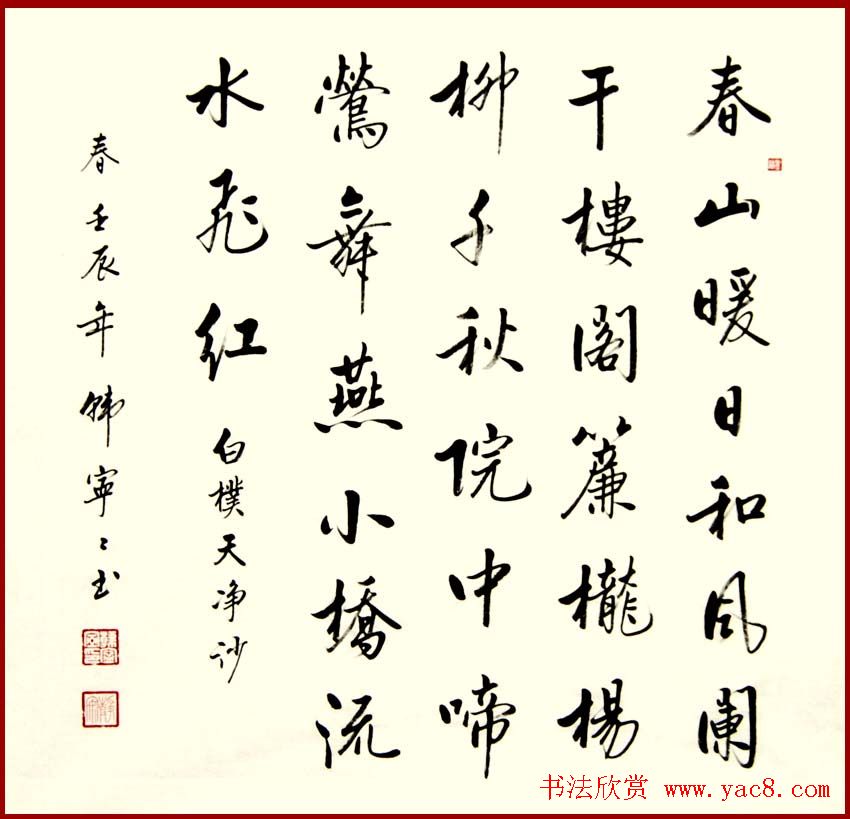 春山暖日和风闌
干樓閣簾櫳楊
柳千秋院中啼
鶯舞燕小橋流
水飛紅
白樸天净沙
春壬辰年韩寧々书
书法欣赏 www.yac8.com